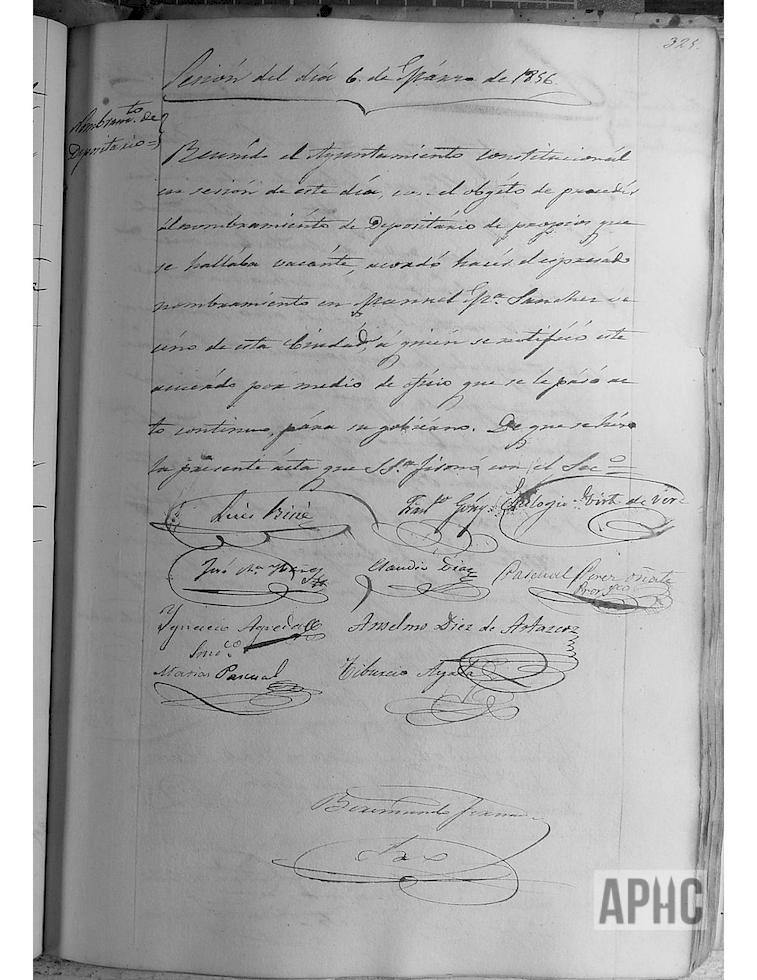 325.
Sesión del día 6. de Marzo de 1856.
Nombram.to de
Depositario=
Reunido el Ayuntamiento constitucional
en sesión de este día, con el objéto de procedér
al nombramiénto de Depositário de propios que
se hallaba vacánte, acordó hacér el espresádo
nombramiento en Manuél M.a Sanchez ve
cino de esta Ciudád, á quién se notificó este
acuérdo por medio de ofício que se le pasó ac
to continuo, pára su gobiérno. De que se hizo
la presente ácta que SS.as firmó con el Sec.o
Luis
Fran.co Gonz. Eulogio
José M.a Claudio Diaz Pascual Perez Oñate
Ygnacio Anselmo Diez de
Pascual Tiburcio Ayala
APHC